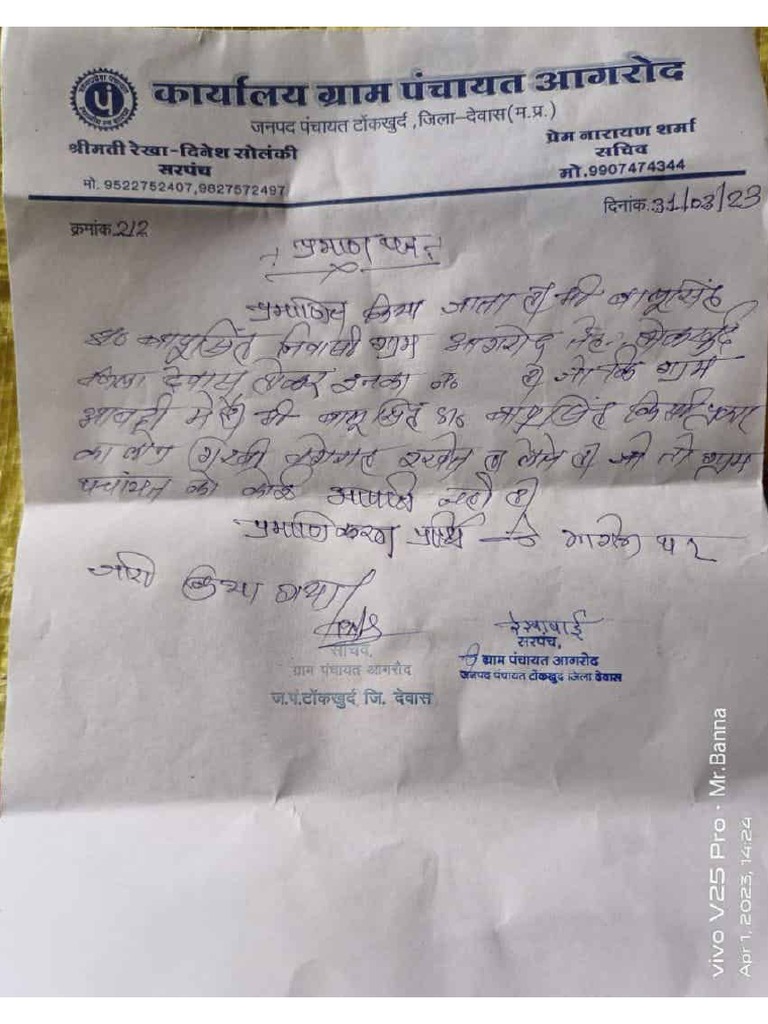 कार्यालय ग्राम पंचायत आगरोद
जनपद पंचायत टोंकखुर्द ,जिला-देवास(म.प्र.)
श्रीमती रेखा-दिनेश सोलंकी
सरपंच
मो. 9522752407,9827572497
प्रेम नारायण शर्मा
सचिव
मो.9907474344
क्रमांक.212
दिनांक.31/03/23
प्रमाण पत्र
प्रमाणित किया जाता है श्री बाबूसिंह
निवासी ग्राम आगरोद तह. टोंकखुर्द
जिला देवास होकर इनका म० है जो कि ग्राम
आबादी में है श्री किसी प्रकार
का लोन गिरवी रखने लेते है तो ग्राम
पंचायत को कोई आपत्ति नहीं है
प्रमाणिकरण प्रार्थी के मांगने पर
जारी किया गया
रेखाबाई
सचिव,
ग्राम पंचायत आगरोद
ज.पं.टोंकखुर्द जि. देवास
सरपंच,
ग्राम पंचायत आगरोद
जनपद पंचायत टोंकखुर्द जिला देवास
vivo V25 Pro · Mr.Banna
Apr 1, 2023, 14:24